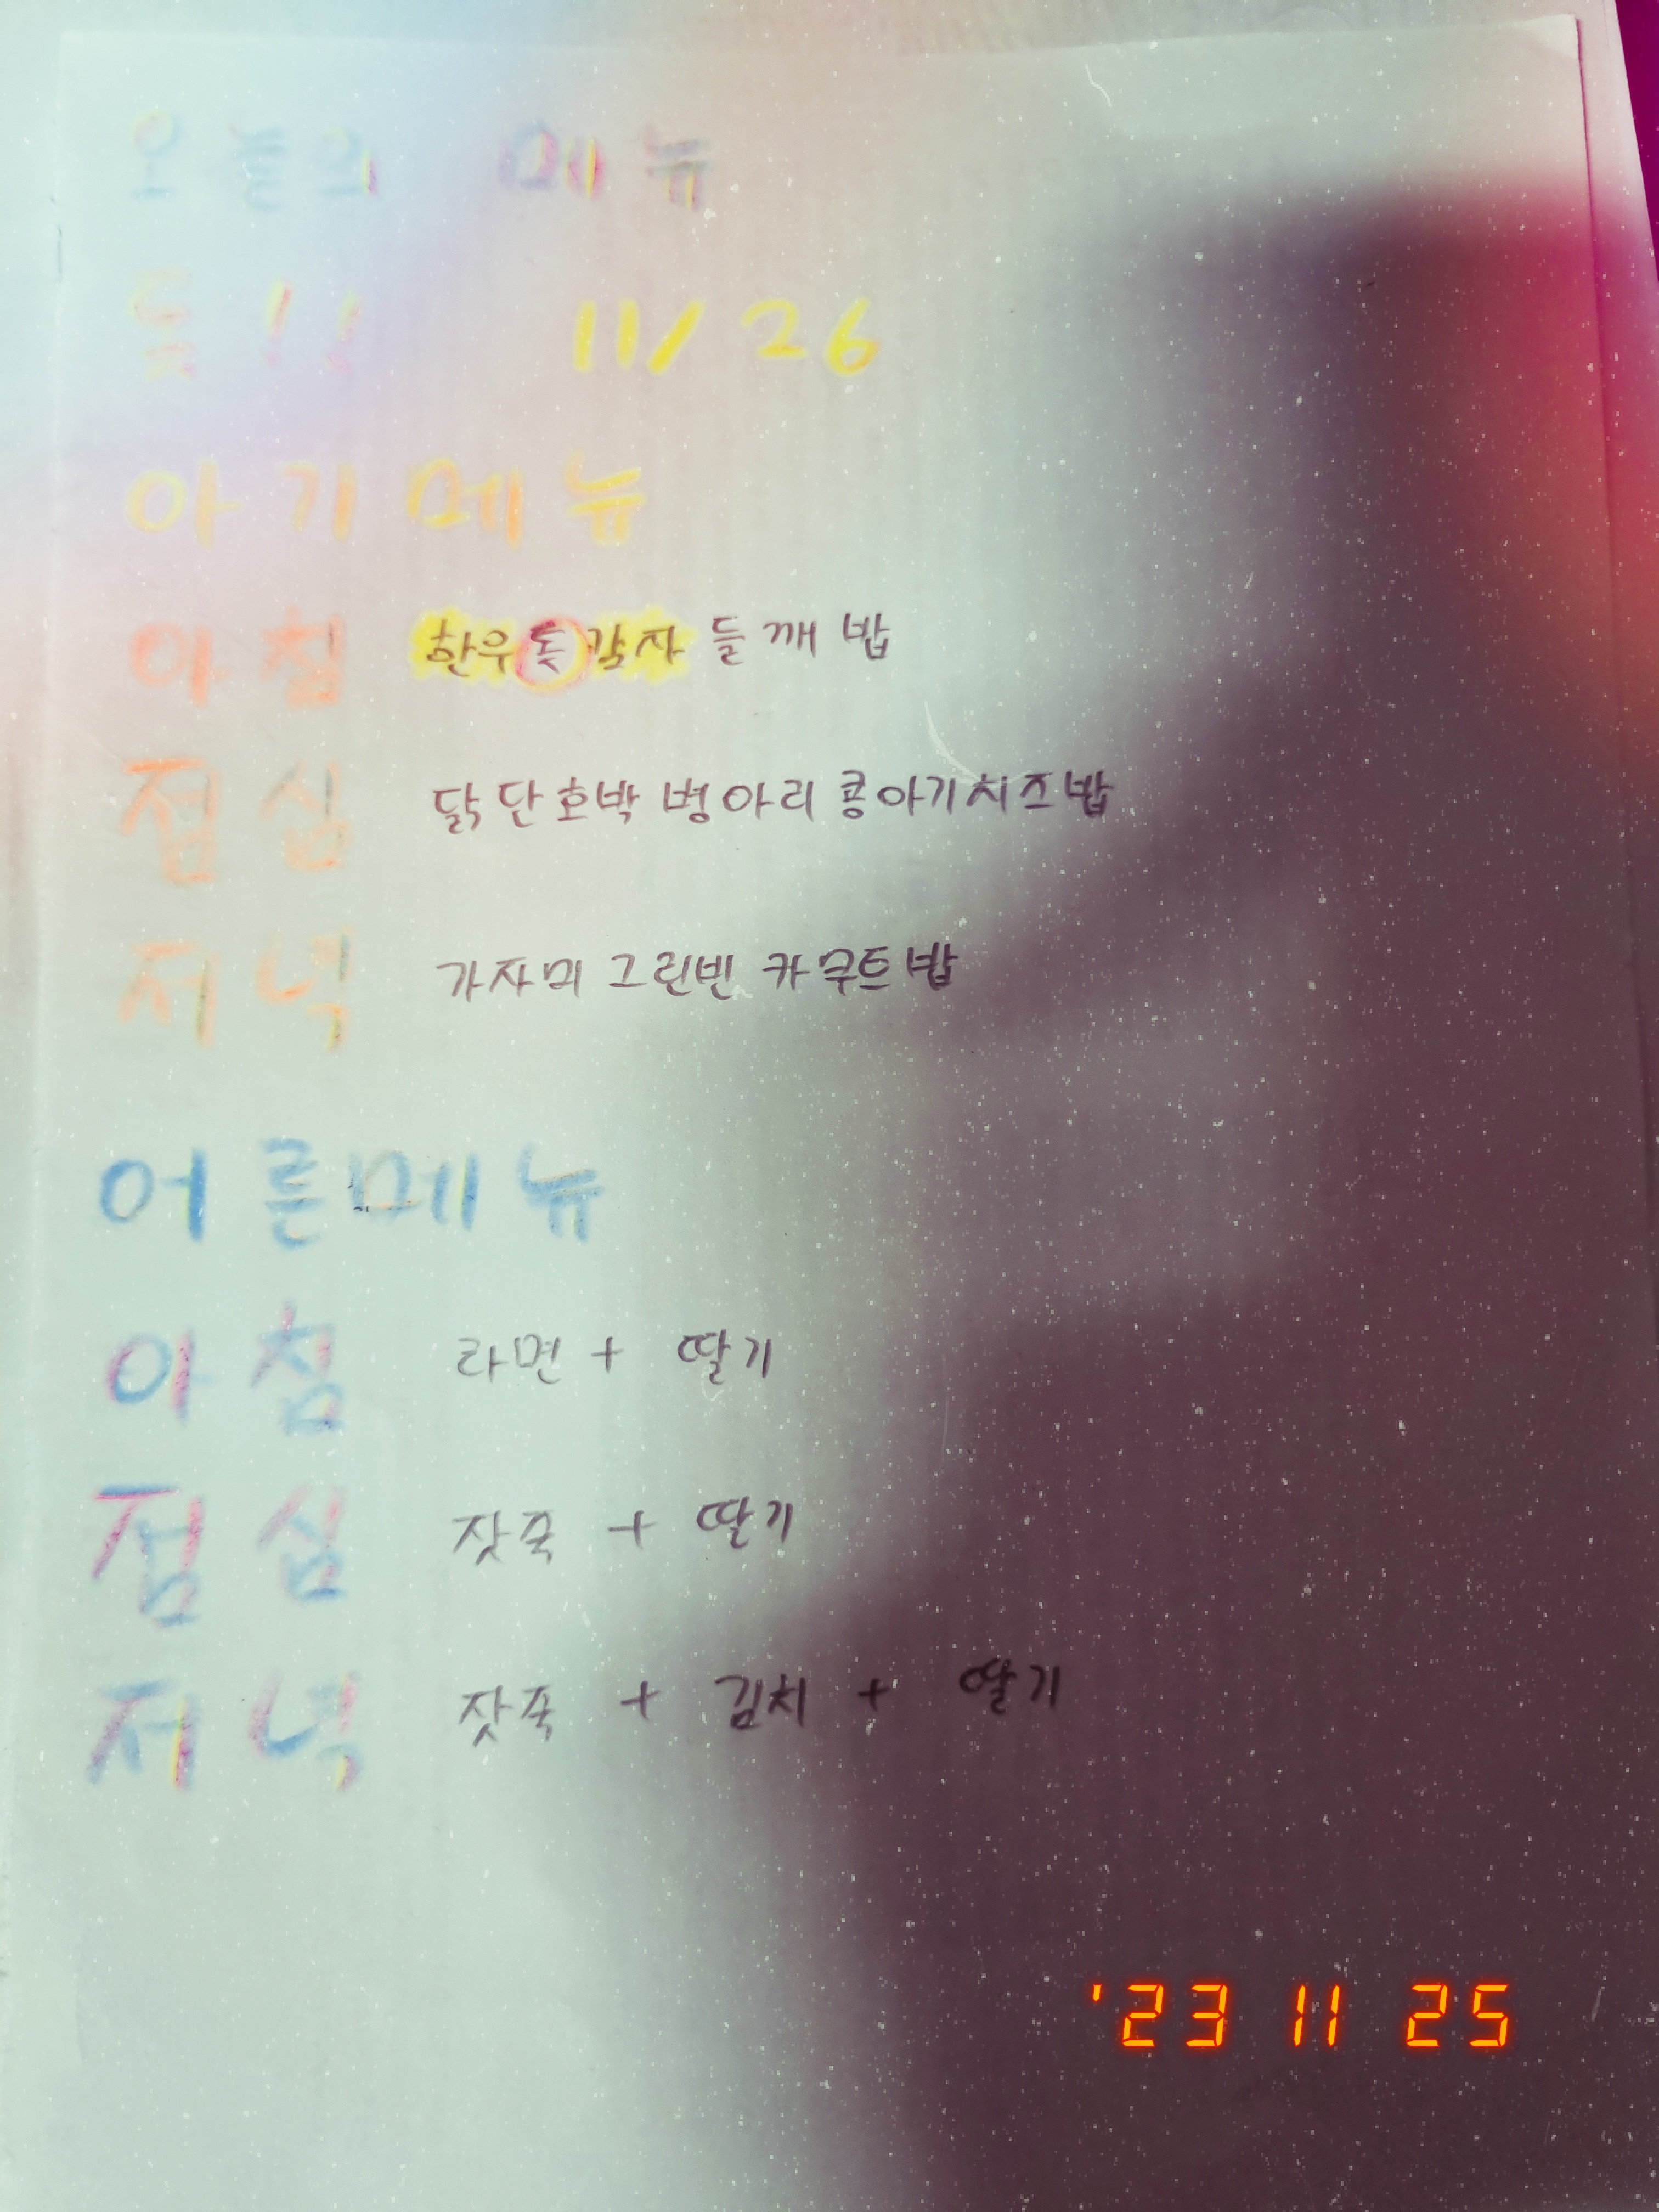 오늘의 메뉴
들!! 11/26
아기메뉴
아침 한우톳감자 들깨 밥
점심 닭단호박 병아리 콩아기치즈밥
저녁 가자미 그린빈 카무트밥
어른메뉴
아침 라면 + 딸기
점심 잣죽 + 딸기
저녁 잣죽 + 김치 + 딸기
'23 11 25